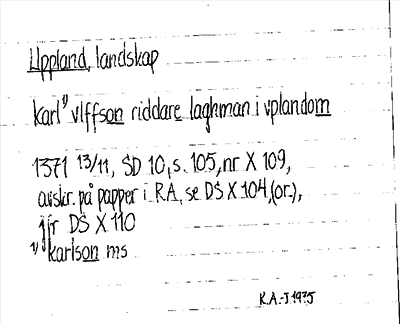 Uppland, landskap
karl¹⁾ vlffson riddare laghman i vplandom
1371 13/11, SD 10, s. 105, nr X 109,
avskr. på papper i RA, se DS X 104, (or.),
jfr DS X 110
¹⁾ karlson ms
K.A.-J 1975